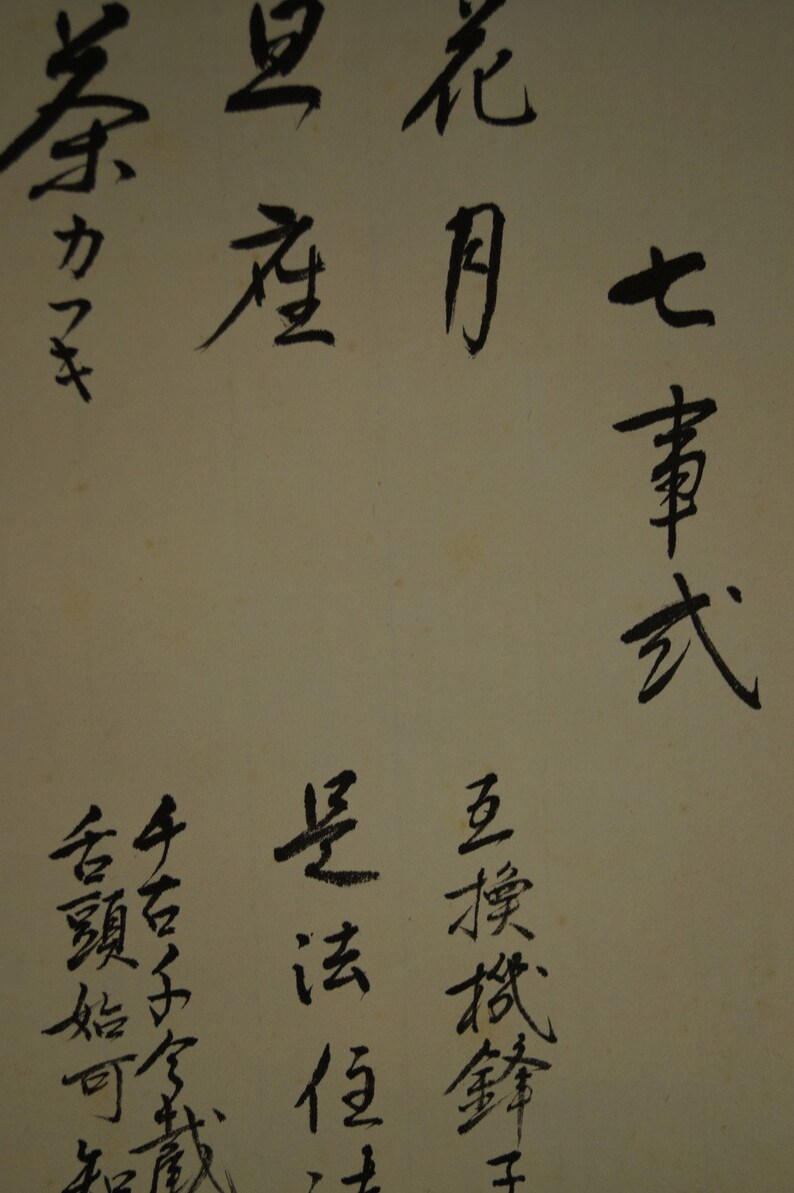 七事式
花月
互換機鋒子
旦座
是法住法
茶カフキ
千古千今截
舌頭始可知